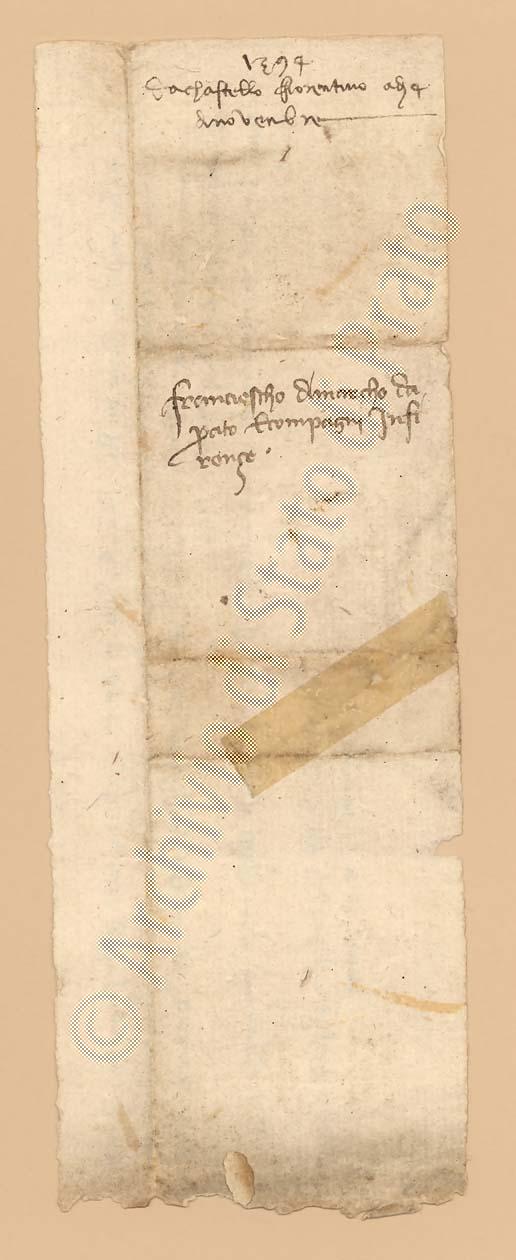 1394
Da chastello fiorentino a dì 4
di novenbre
Franciescho di Marcho da
Prato e compagni in Fi
renze
© Archivio di Stato di Prato